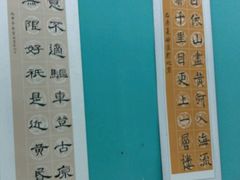 日依山盡黃河入海流
窮千里目更上一層樓
意不適驅車登古原
無限好祇是近黃昏